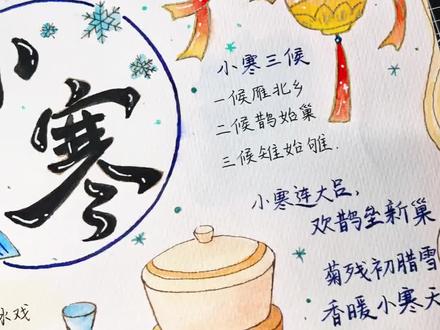 小寒
小寒三候
一候雁北乡
二候鹊始巢
三候雉始雊.
小寒连大吕,
欢鹊垒新巢
菊残初腊雪
香暖小寒天
冰戏